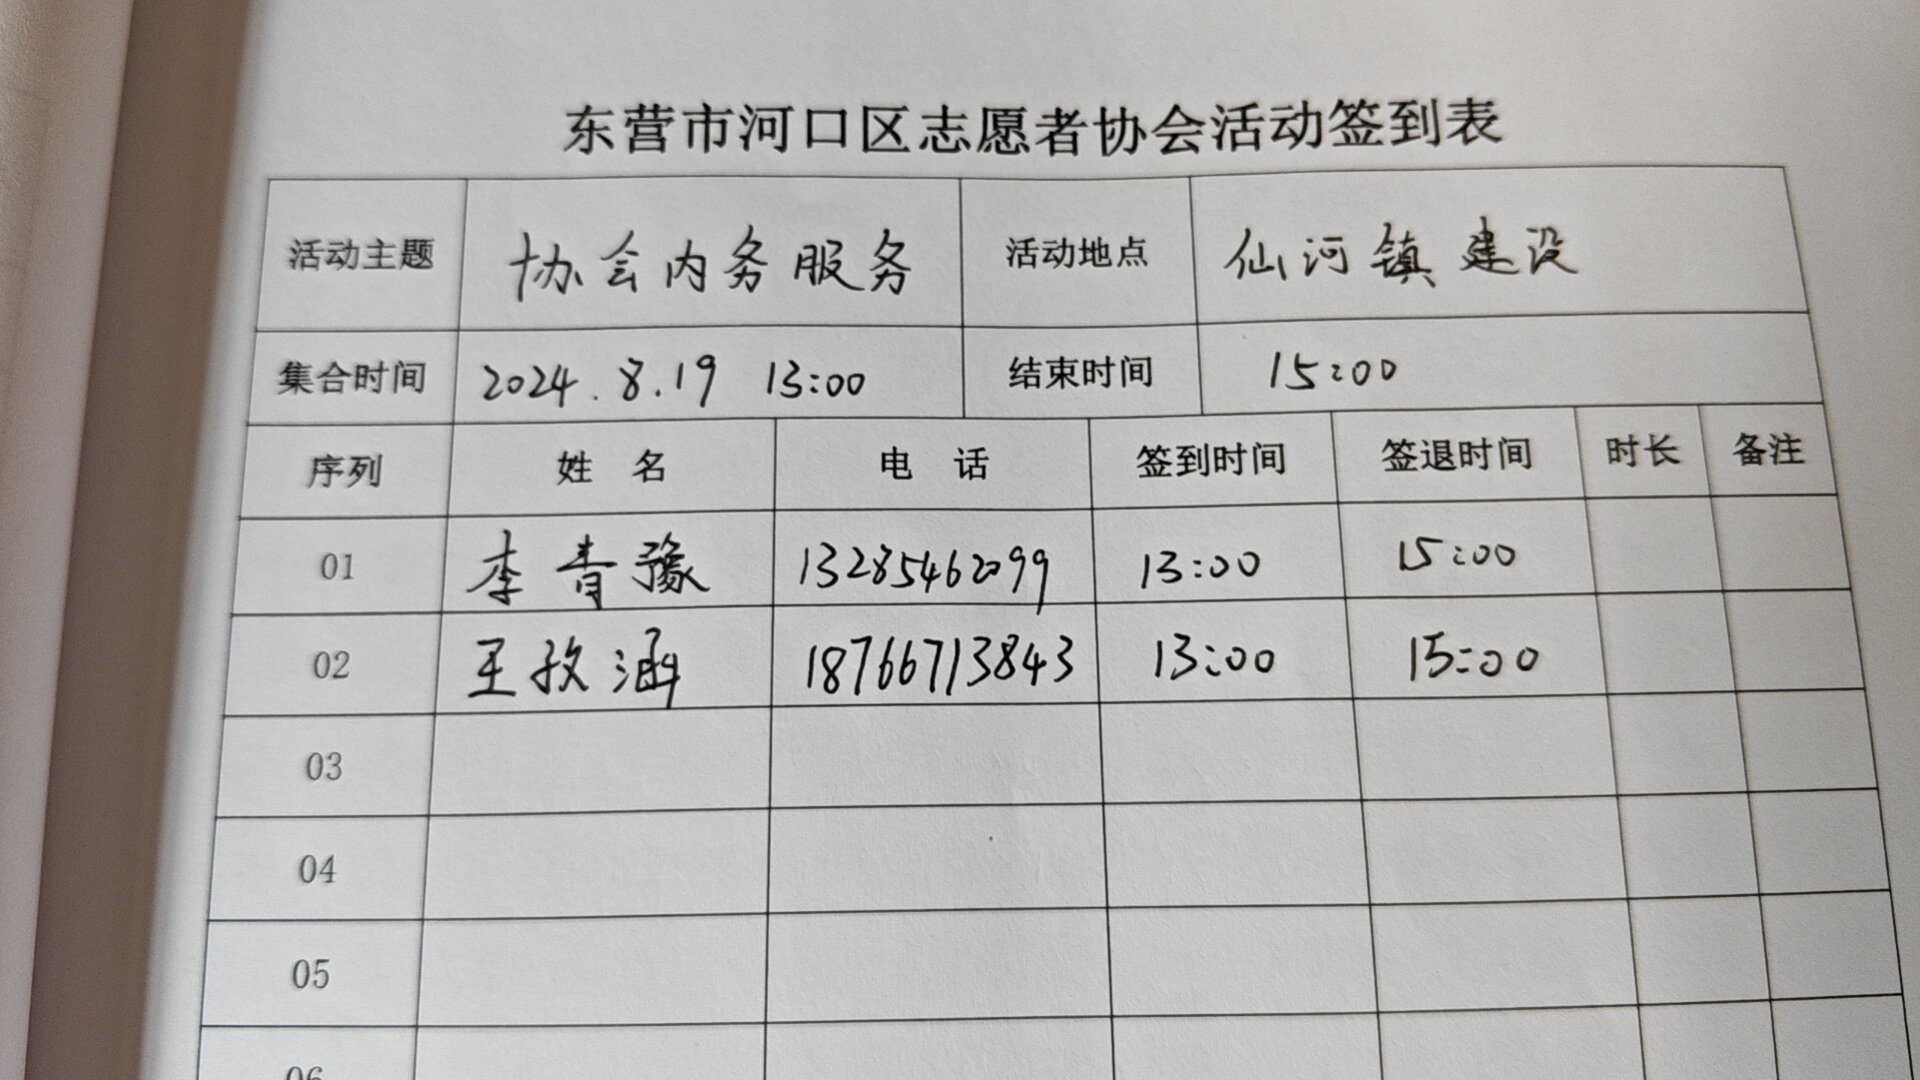 东营市河口区志愿者协会活动签到表
活动主题 协会内务服务 活动地点 仙河镇建设
集合时间 2024.8.19 13:00 结束时间 15:00
序列 姓名 电话 签到时间 签退时间 时长 备注
01 李青豫 13285462099 13:00 15:00
02 王孜涵 18766713843 13:00 15:00
03
04
05
06